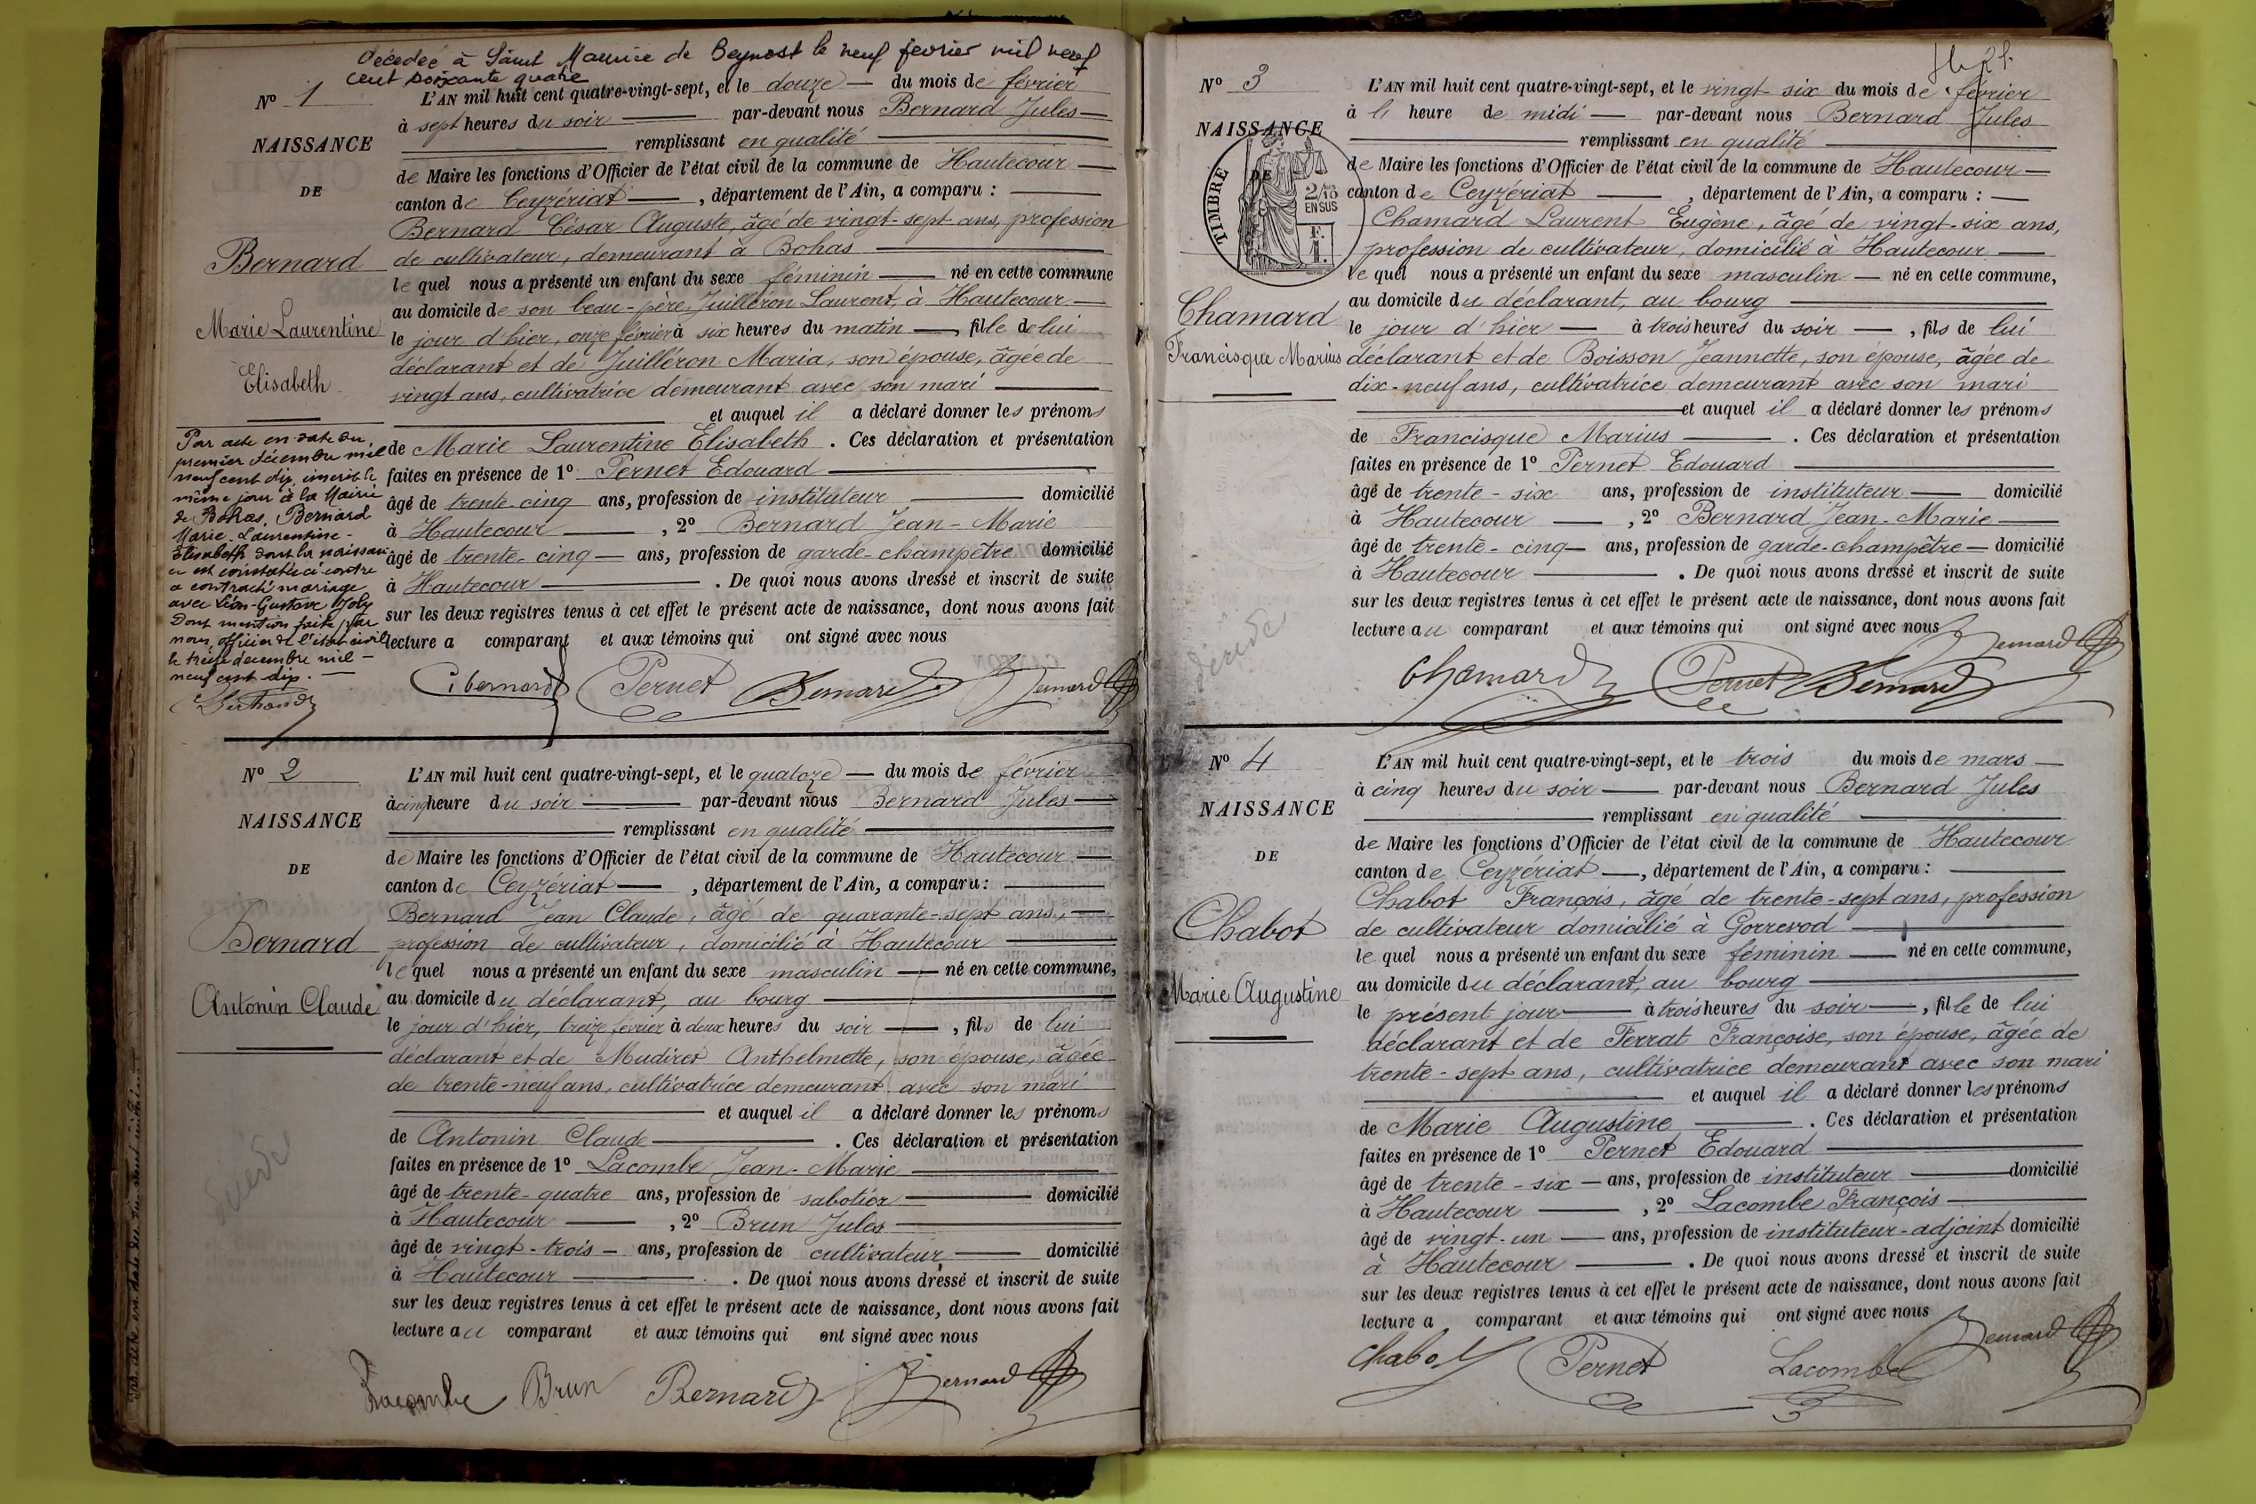 Décédée à Saint Maurice de Beynost le neuf février mil neuf
cent soixante quatre
N° 1
NAISSANCE
DE
Bernard
Marie Laurentine
Elisabeth
Par acte en date du
premier décembre mil
neuf cent dix, inscrit le
même jour à la Mairie
de Bohas, Bernard
Marie-Laurentine-
Elisabeth dont la naissan-
ce est constatée ci-contre
a contracté mariage
avec Léon-Gustave Joly
Dont mention faite par
nous, officier de l'état civil
le treize décembre mil-
neuf cent dix.
L'AN mil huit cent quatre-vingt-sept, et le douze du mois de février
à sept heures du soir par-devant nous Bernard Jules
remplissant en qualité
de Maire les fonctions d'Officier de l'état civil de la commune de Hautecour
canton de Ceyzériat, département de l'Ain, a comparu :
Bernard César Auguste, âgé de vingt-sept ans, profession
de cultivateur, demeurant à Bohas
lequel nous a présenté un enfant du sexe féminin né en cette commune
au domicile de son beau-père, Juilléron Laurent, à Hautecour
le jour d'hier, onze février à six heures du matin, fille de lui
déclarant et de Juilléron Maria, son épouse, âgée de
vingt ans, cultivatrice demeurant avec son mari
et auquel il a déclaré donner les prénoms
de Marie Laurentine Elisabeth. Ces déclaration et présentation
faites en présence de 1° Pernet Edouard
âgé de trente-cinq ans, profession de instituteur domicilié
à Hautecour, 2° Bernard Jean-Marie
âgé de trente-cinq ans, profession de garde-champêtre domicilié
à Hautecour. De quoi nous avons dressé et inscrit de suite
sur les deux registres tenus à cet effet le présent acte de naissance, dont nous avons fait
lecture a comparant et aux témoins qui ont signé avec nous
C bernard Pernet Bernard Bernard
N° 2
NAISSANCE
DE
Bernard
Antonin Claude
décédé
L'AN mil huit cent quatre-vingt-sept, et le quatoze du mois de février
à cinq heure du soir par-devant nous Bernard Jules
remplissant en qualité
de Maire les fonctions d'Officier de l'état civil de la commune de Hautecour
canton de Ceyzériat, département de l'Ain, a comparu :
Bernard Jean Claude, âgé de quarante-sept ans,
profession de cultivateur, domicilié à Hautecour
lequel nous a présenté un enfant du sexe masculin né en cette commune,
au domicile du déclarant, au bourg
le jour d'hier, treize février à deux heures du soir, fils de lui
déclarant et de Mudiret Anthelmette, son épouse, âgée
de trente-neuf ans, cultivatrice demeurant avec son mari
et auquel il a déclaré donner les prénoms
de Antonin Claude. Ces déclaration et présentation
faites en présence de 1° Lacombe Jean-Marie
âgé de trente-quatre ans, profession de sabotier domicilié
à Hautecour, 2° Brun Jules
âgé de vingt-trois ans, profession de cultivateur domicilié
à Hautecour. De quoi nous avons dressé et inscrit de suite
sur les deux registres tenus à cet effet le présent acte de naissance, dont nous avons fait
lecture au comparant et aux témoins qui ont signé avec nous
Lacombe Brun Bernard Bernard
N° 3
NAISSANCE
DE
TIMBRE
2/10
EN SUS
F.
1.
Chamard
Francisque Marius
décédé
L'AN mil huit cent quatre-vingt-sept, et le vingt-six du mois de février
à heure de midi par-devant nous Bernard Jules
remplissant en qualité
de Maire les fonctions d'Officier de l'état civil de la commune de Hautecour
canton de Ceyzériat, département de l'Ain, a comparu :
Chamard Laurent Eugène, âgé de vingt-six ans,
profession de cultivateur, domicilié à Hautecour
le quel nous a présenté un enfant du sexe masculin né en cette commune,
au domicile du déclarant, au bourg
le jour d'hier à trois heures du soir, fils de lui
déclarant et de Boisson Jeannette, son épouse, âgée de
dix-neuf ans, cultivatrice demeurant avec son mari
et auquel il a déclaré donner les prénoms
de Francisque Marius. Ces déclaration et présentation
faites en présence de 1° Pernet Edouard
âgé de trente-six ans, profession de instituteur domicilié
à Hautecour, 2° Bernard Jean-Marie
âgé de trente-cinq ans, profession de garde-champêtre domicilié
à Hautecour. De quoi nous avons dressé et inscrit de suite
sur les deux registres tenus à cet effet le présent acte de naissance, dont nous avons fait
lecture au comparant et aux témoins qui ont signé avec nous
Chamard Pernet Bernard Bernard
N° 4
NAISSANCE
DE
Chabot
Marie Augustine
L'AN mil huit cent quatre-vingt-sept, et le trois du mois de mars
à cinq heures du soir par-devant nous Bernard Jules
remplissant en qualité
de Maire les fonctions d'Officier de l'état civil de la commune de Hautecour
canton de Ceyzériat, département de l'Ain, a comparu :
Chabot François, âgé de trente-sept ans, profession
de cultivateur domicilié à Gorrevod
le quel nous a présenté un enfant du sexe féminin né en cette commune,
au domicile du déclarant, au bourg
le présent jour à trois heures du soir, fille de lui
déclarant et de Ferrat Françoise, son épouse, âgée de
trente-sept ans, cultivatrice demeurant avec son mari
et auquel il a déclaré donner les prénoms
de Marie Augustine. Ces déclaration et présentation
faites en présence de 1° Pernet Edouard
âgé de trente-six ans, profession de instituteur domicilié
à Hautecour, 2° Lacombe François
âgé de vingt-un ans, profession de instituteur-adjoint domicilié
à Hautecour. De quoi nous avons dressé et inscrit de suite
sur les deux registres tenus à cet effet le présent acte de naissance, dont nous avons fait
lecture a comparant et aux témoins qui ont signé avec nous
Chabot Pernet Lacombe Bernard